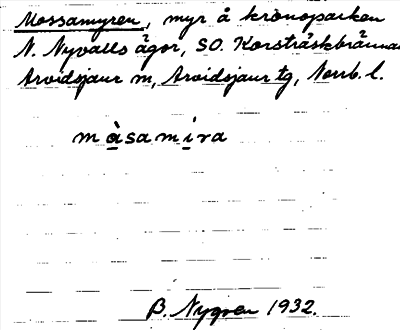 Mossamyren, myr å kronoparken
N. Nyvalls ägor, SO. Korsträskbrännan
Arvidsjaur sn, Arvidsjaur tg, Norrb. l.
mòsamira
B. Nygren 1932.